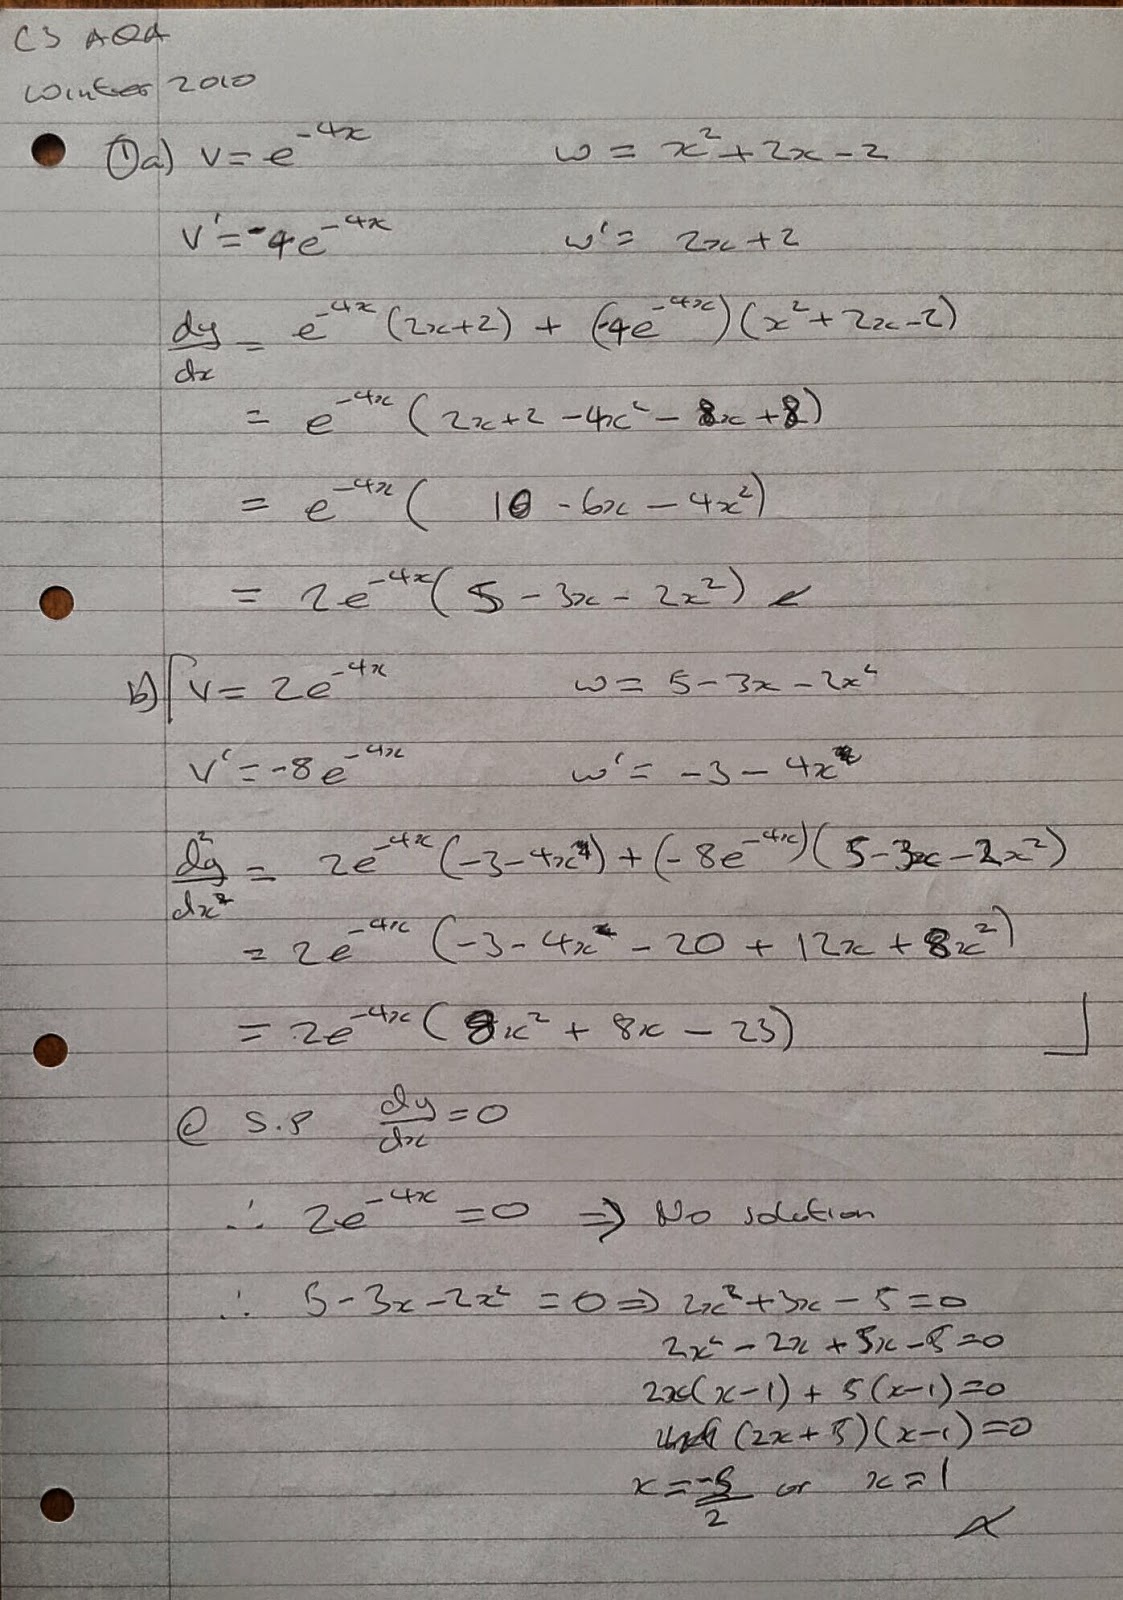 C3 AQA
Winter 2010
①a) v = e^{-4x} w = x² + 2x - 2
v' = -4e^{-4x} w' = 2x + 2
dy/dx = e^{-4x}(2x+2) + (-4e^{-4x})(x² + 2x - 2)
= e^{-4x}(2x + 2 - 4x² - 8x + 8)
= e^{-4x}(10 - 6x - 4x²)
= 2e^{-4x}(5 - 3x - 2x²)
b) [v = 2e^{-4x} w = 5 - 3x - 2x²
v' = -8e^{-4x} w' = -3 - 4x
d²y/dx² = 2e^{-4x}(-3 - 4x) + (-8e^{-4x})(5 - 3x - 2x²)
= 2e^{-4x}(-3 - 4x - 20 + 12x + 8x²)
= 2e^{-4x}(8x² + 8x - 23)]
@ S.P dy/dx = 0
∴ 2e^{-4x} = 0 ⇒ No solution
∴ 5 - 3x - 2x² = 0 ⇒ 2x² + 3x - 5 = 0
2x² - 2x + 5x - 5 = 0
2x(x-1) + 5(x-1) = 0
(2x+5)(x-1) = 0
x = -5/2 or x = 1